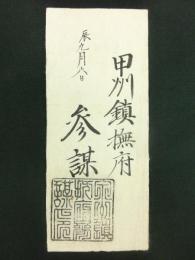 甲州鎮撫府
参謀
辰九月八日